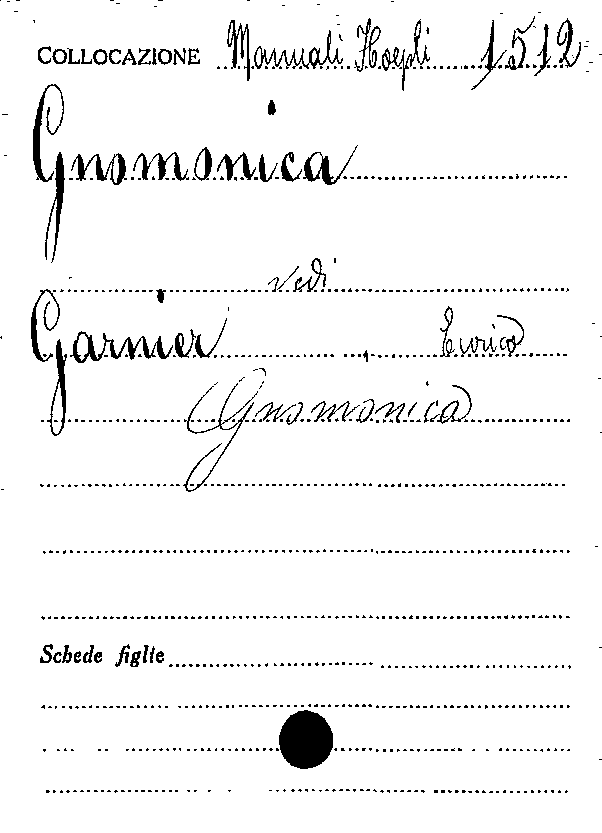 COLLOCAZIONE Manuali Hoepli 1512
Gnomonica
vedi
Garnier Enrico
Gnomonica
Schede figlie